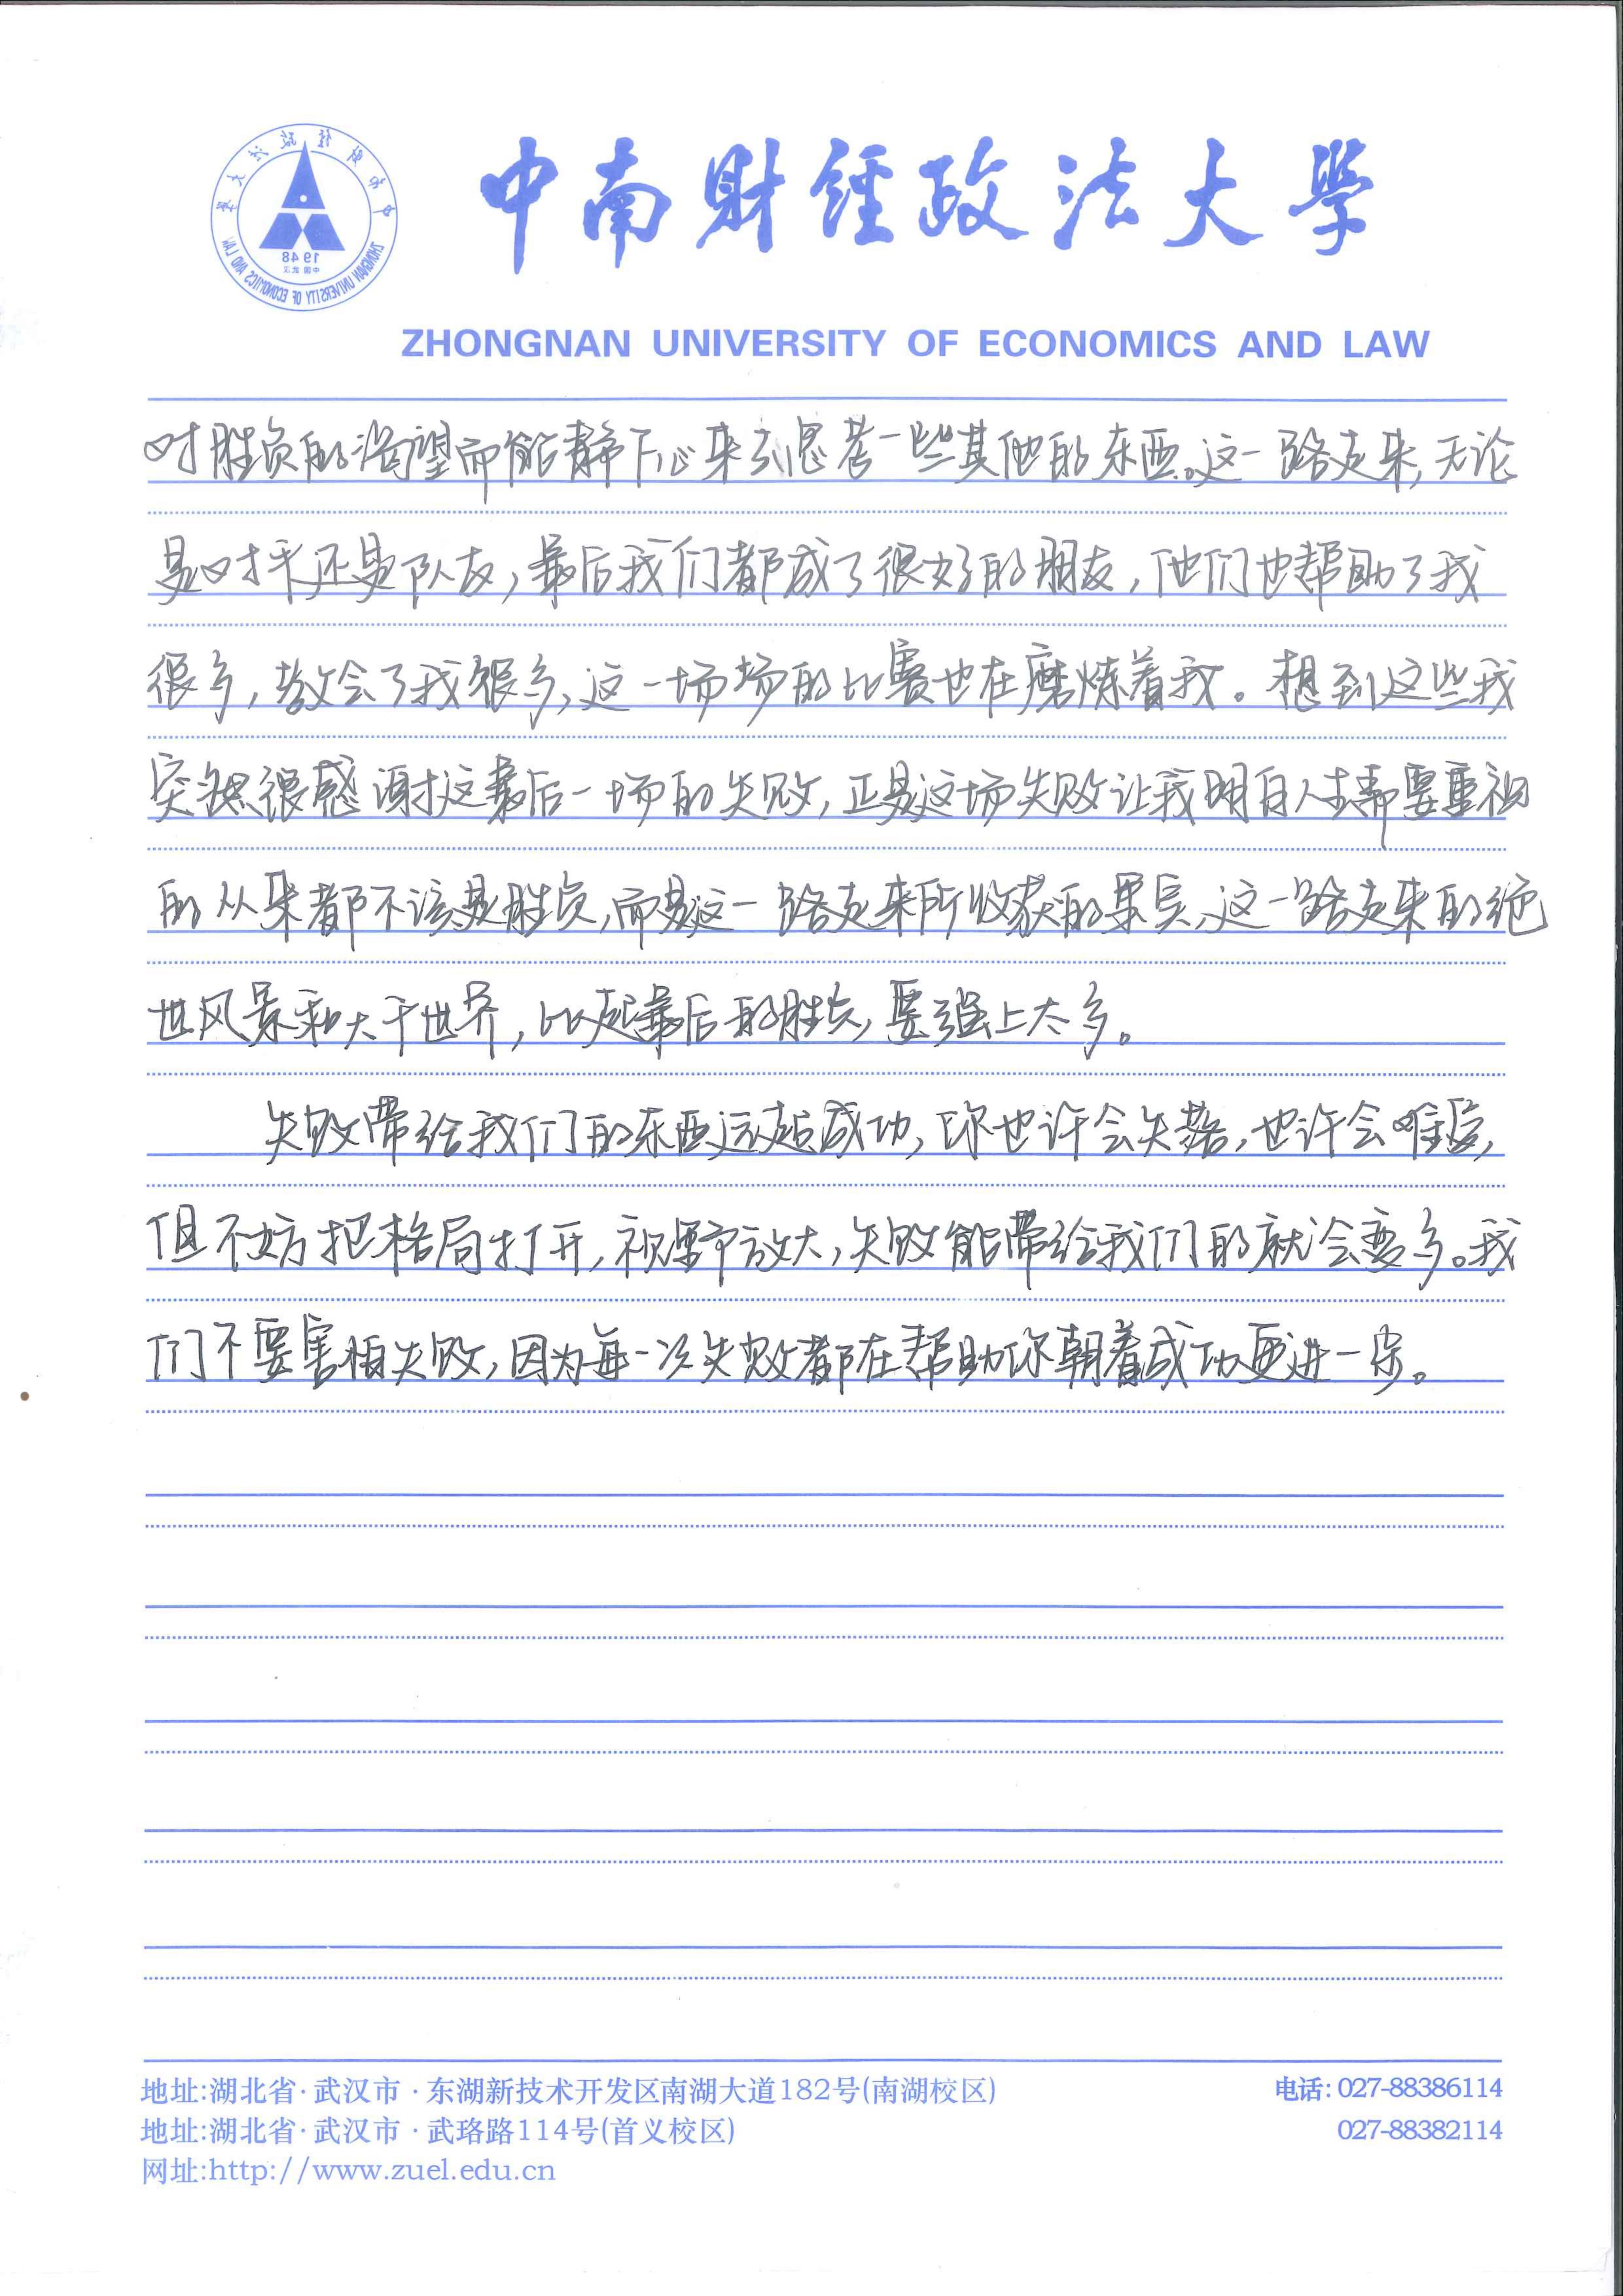 中南财经政法大学
1948
ZHONGNAN UNIVERSITY OF ECONOMICS AND LAW
ZHONGNAN UNIVERSITY OF ECONOMICS AND LAW
对胜负的渴望而能静下心来去思考一些其他的东西。这一路走来,无论
是对手还是队友,最后我们都成了很好的朋友,他们也帮助了我
很多,教会了我很多,这一场场的比赛也在磨炼着我。想到这些我
突然很感谢这最后一场的失败,正是这场失败让我明白人生需要重视
的从来都不该是胜负,而是这一路走来所收获的果实,这一路走来的绝
世风景和大千世界,比起最后的胜负,要强上太多。
失败带给我们的东西远超成功,你也许会失落,也许会难受,
但不妨把格局打开,视野放大,失败能带给我们的就会变多。我
们不要害怕失败,因为每一次失败都在帮助你朝着成功更进一步。
地址:湖北省·武汉市·东湖新技术开发区南湖大道182号(南湖校区) 电话:027-88386114
地址:湖北省·武汉市·武珞路114号(首义校区) 027-88382114
网址:http://www.zuel.edu.cn